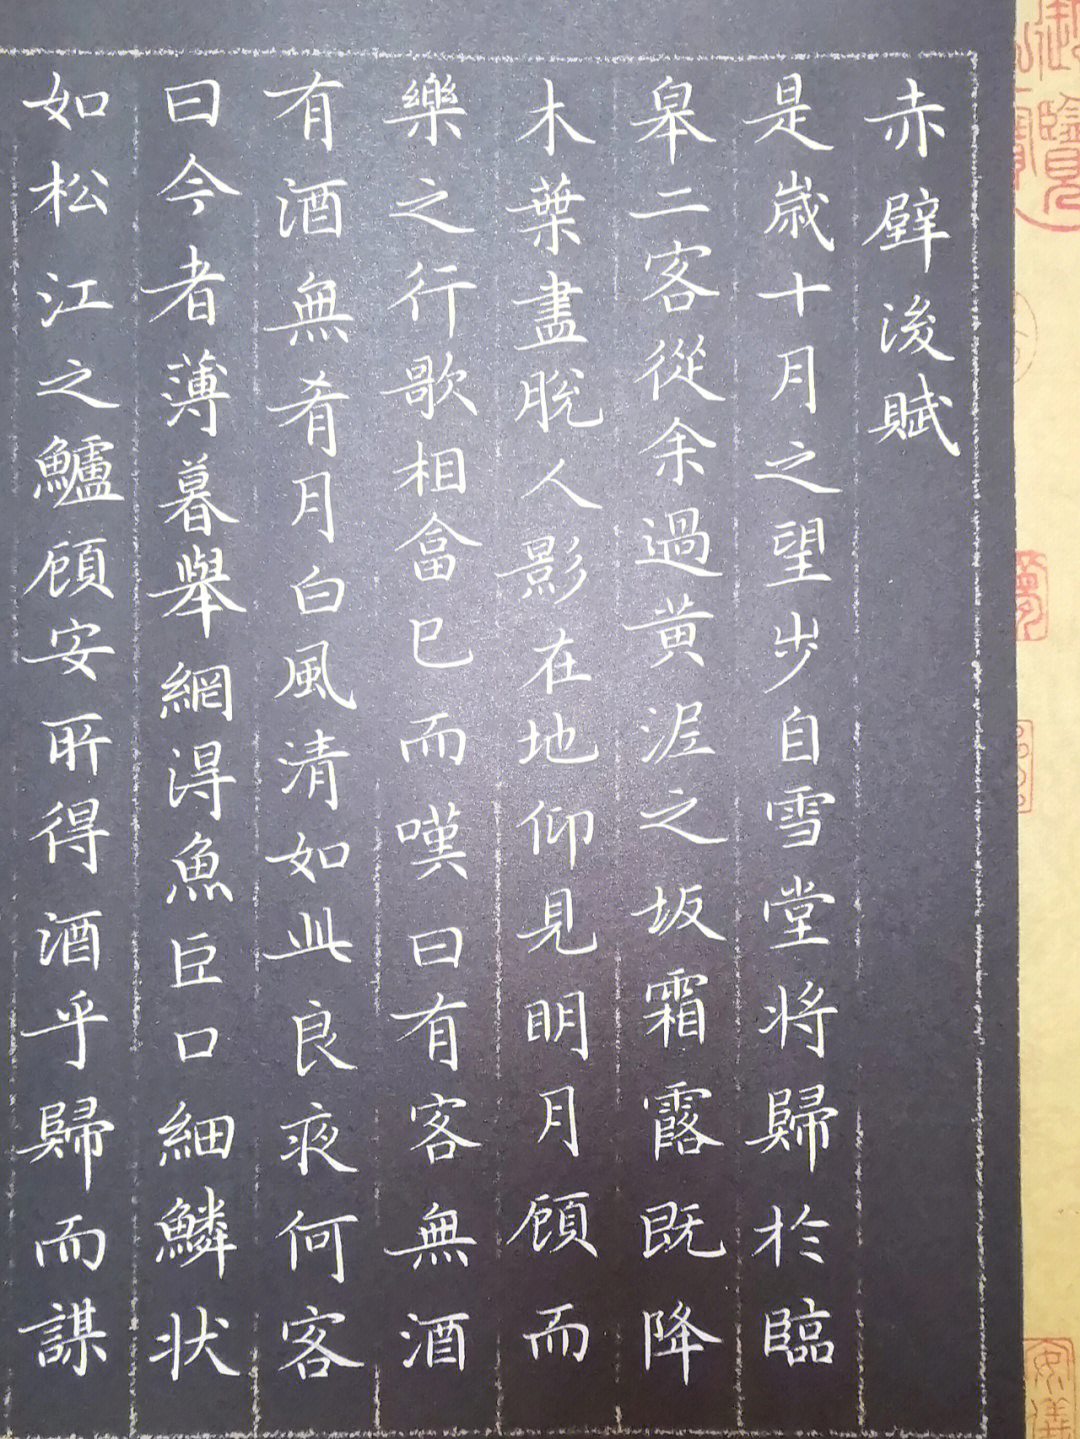 赤壁後賦
是歲十月之望步自雪堂將歸於臨
皋二客從余過黃泥之坂霜露既降
木葉盡脫人影在地仰見明月顧而
樂之行歌相畣已而嘆曰有客無酒
有酒無肴月白風清如此良夜何客
曰今者薄暮舉網得魚巨口細鱗狀
如松江之鱸顧安所得酒乎歸而謀